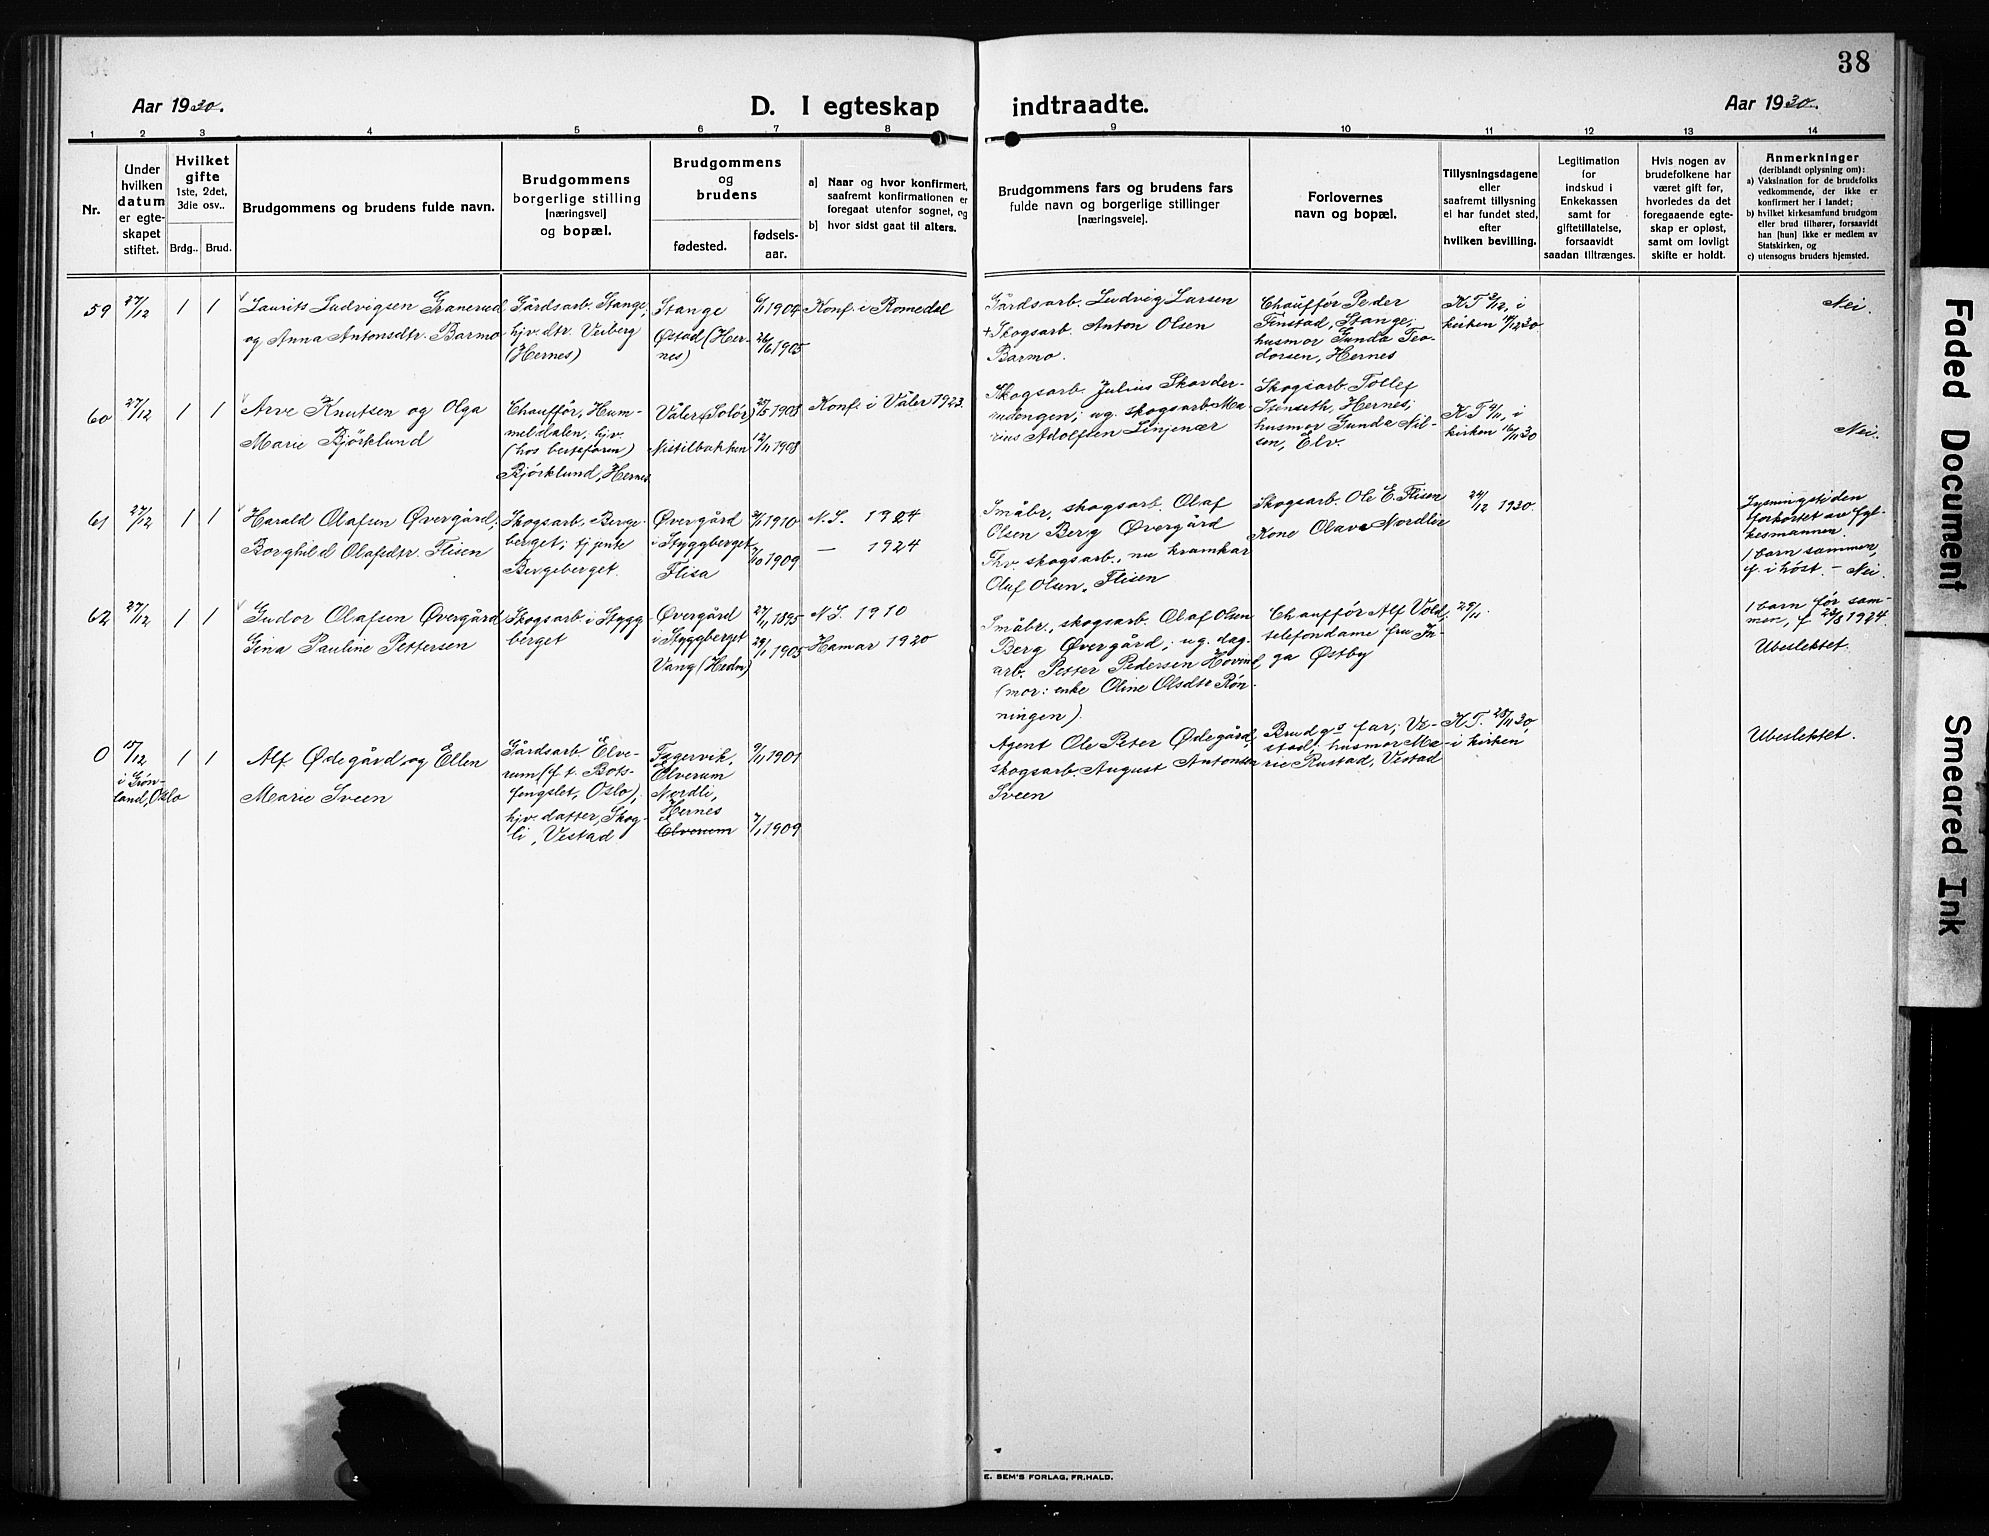 38
Aar 1930.
D. I egteskap indtraadte.
Aar 1930.
1 2 3 4 5 6 7 8 9 10 11 12 13 14
Nr.
Under
hvilken
datum
er egte-
skapet
stiftet.
Hvilket
gifte
1ste, 2det,
3die osv..
Brdg.. Brud.
Brudgommens og brudens fulde navn.
Brudgommens
borgerlige stilling
(næringsvei)
og bopæl.
Brudgommens
og
brudens
fødested.
fødsels-
aar.
a) Naar og hvor konfirmert,
saafremt konfirmationen er
foregaat utenfor sognet, og
b) hvor sidst gaat til alters.
Brudgommens fars og brudens fars
fulde navn og borgerlige stillinger
(næringsveie).
Forlovernes
navn og bopæl.
Tillysningsdagene
eller
saafremt tillysning
ei har fundet sted,
efter
hvilken bevilling.
Legitimation
for
indskud i
Enkekassen
samt for
giftetillatelse,
forsaavidt
saadan tiltrænges.
Hvis nogen av
brudefolkene har
været gift før,
hvorledes da det
foregaaende egte-
skap er opløst,
samt om lovligt
skifte er holdt.
Anmerkninger
(deriblandt oplysning om):
a) Vaksination for de brudefolks
vedkommende, der ikke er
konfirmert her i landet;
b) hvilket kirkesamfund brudgom
eller brud tilhører, forsaavidt
han (hun) ikke er medlem av
Statskirken, og
c) utensogns bruders hjemsted.
59 27/12 1 1
Laurits Ludvigsen Granerud
og Anna Antonsdtr. Barmo
Gårdsarb. Stange;
hjv. dtr. Veiberg
(Hernes)
Stange
Østad (Her-
nes)
6/1 1904
26/6 1905
Konf. i Romedal
Gårdsarb. Ludvig Larsen
+ Skogsarb. Anton Olsen
Barmo.
Chauffør Peder
Finstad, Stange;
husmor Gunda Teo-
dorsen, Hernes
K T 7/12, i
kirken 14/12 30
Nei.
60 27/12 1 1
Arve Knutsen og Olga
Marie Bjørklund
Chauffør, Hum-
meldalen, hjv.
(hos besteforen)
Bjørklund, Hernes
Våler (Solør)
Nistilbakken
27/5 1908
12/11 1908
Konf. i Våler 1923.
Skogsarb. Julius Skavder-
udengen; ug. skogsarb. Ma-
rius Adolfsen Linjenær
Skogsarb. Tollef
Stenseth, Hernes;
husmor Gunda Nil-
sen, Elv.
K T 4/11, i
kirken 16/11 30
Nei.
61 27/12 1 1
Harald Olafsen Øvergård,
Borghild Olafsdtr. Flisen
Skogsarb., Berge-
berget; tjjente
Bergeberget.
Øvergård
i Styggberget
Flisa
1910
7/10 1909
N.S. 1924
— 1924
Småbr., skogsarb. Olaf
Olsen Berg Øvergård
Fhv. skogsarb., nu kramkar
Olaf Olsen, Flisen
Skogsarb. Ole E. Flisen
Kone Olava Nordlie
24/12 1930.
Lysningstiden
forkortet av fyl-
kesmannen.
1 barn sammen,
f. i høst. — Nei.
62 27/12 1 1
Gudor Olafsen Øvergård
Gina Pauline Pettersen
Skogsarb. i Stygg-
berget
Øvergård
i Styggberget
Vang (Hedm)
27/11 1895
29/1 1905
N.S. 1910
Hamar 1920
Småbr., skogsarb. Olaf Olsen
Berg Øvergård; ug. dag-
arb. Petter Pedersen Hovind
(mor: enke Oline Olsdtr Røn-
ningen).
Chauffør Alf Vold;
telefondame fru In-
ga Østby
29/11.
1 barn før sam-
men, f 23/8 1924.
Ubeslektet.
0 15/12 1 1
i Grøn-
land, Oslo
Alf Ødegård, og Ellen
Marie Sveen
Gårdsarb. Elve-
rum (f. t. Bots-
fengslet, Oslo);
hjv. datter, Skog-
li, Vestad
Fagervik,
Elverum
Nordli,
Hernes
Elverum
9/11 1901
7/1 1909
Agent Ole Peter Ødegård,
skogsarb. August Antonsen
Sveen
Brudgs far, Ve-
stad; husmor Ma-
rie Rustad, Vestad
K.T. 28/11 30,
i kirken
Ubeslektet.
E. SEM'S FORLAG, FR.HALD.
Faded Document
Smeared Ink